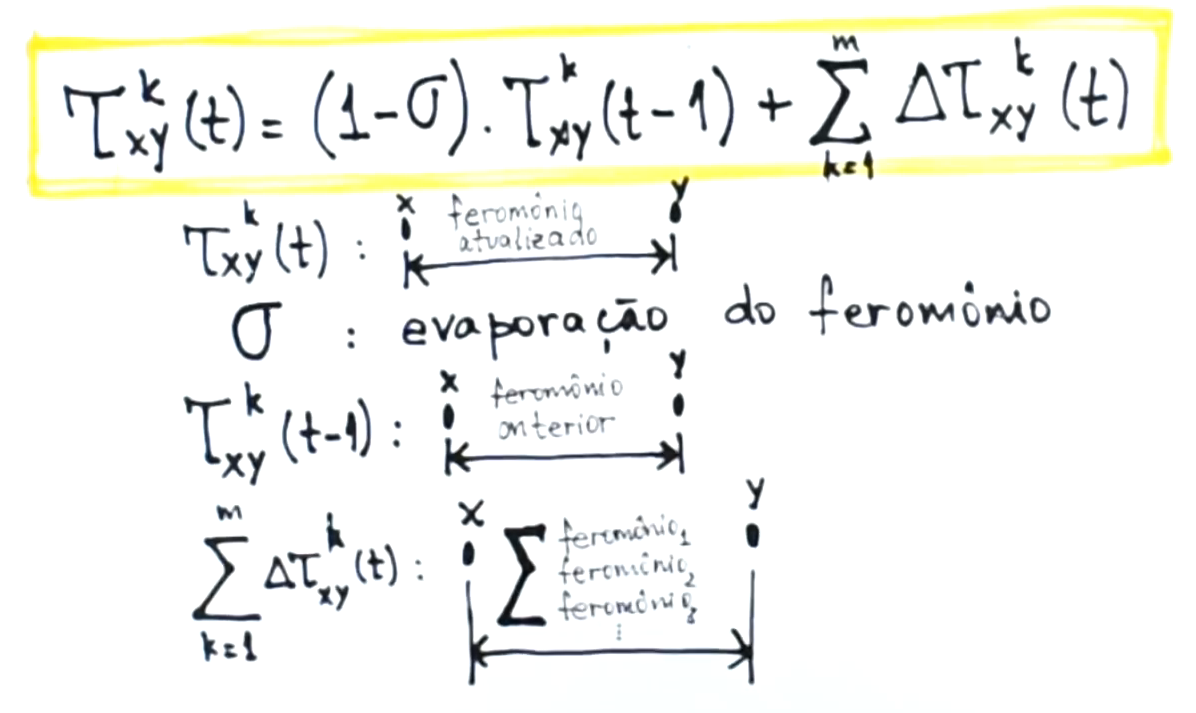 τ_xy^k(t) = (1-σ). τ_xy^k(t-1) + Σ_{k=1}^{m} Δτ_xy^k(t)
τ_xy^k(t) : x feromônio atualizado y
σ : evaporação do feromônio
τ_xy^k(t-1) : x feromônio anterior y
Σ_{k=1}^{m} Δτ_xy^k(t) : x Σ feromônio₁ y
feromônio₂
feromônio₃
⋮